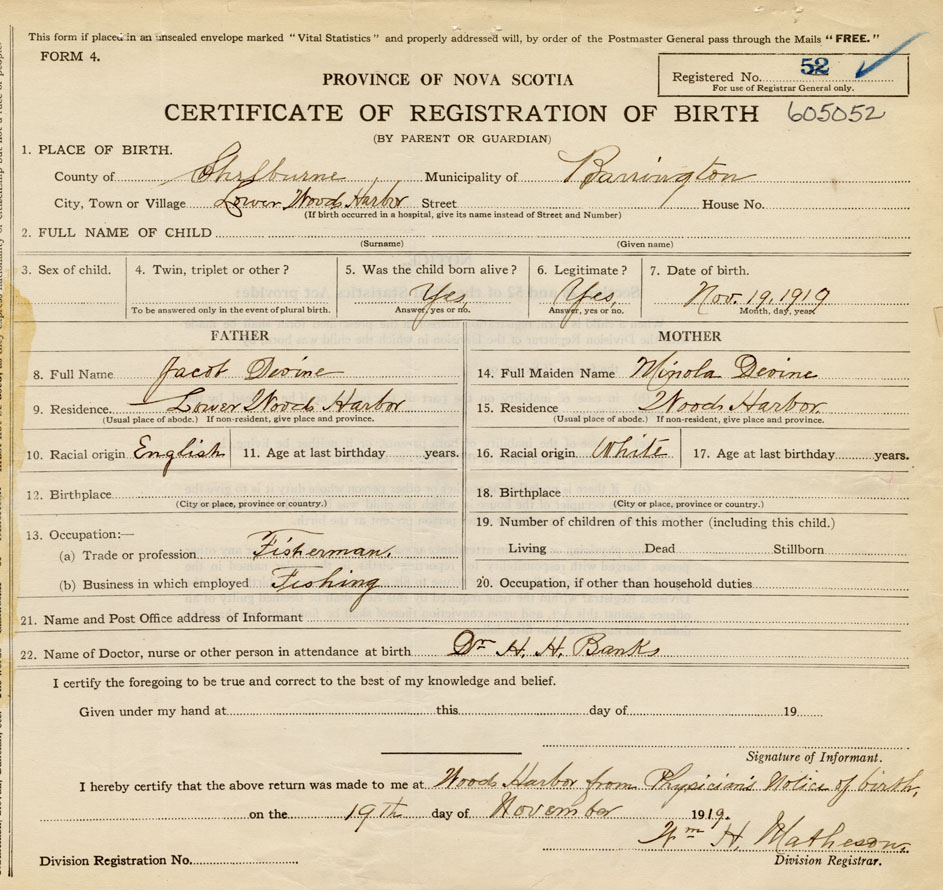 This form if placed in an unsealed envelope marked "Vital Statistics" and properly addressed will, by order of the Postmaster General pass through the Mails "FREE."
FORM 4.
Registered No. 52
For use of Registrar General only.
PROVINCE OF NOVA SCOTIA
CERTIFICATE OF REGISTRATION OF BIRTH 605052
(BY PARENT OR GUARDIAN)
1. PLACE OF BIRTH.
County of Shelburne Municipality of Barrington
City, Town or Village Lower Woods Harbor Street House No.
(If birth occurred in a hospital, give its name instead of Street and Number)
2. FULL NAME OF CHILD
(Surname) (Given name)
3. Sex of child. 4. Twin, triplet or other? 5. Was the child born alive? 6. Legitimate? 7. Date of birth.
Yes, Yes, Nov. 19, 1919
To be answered only in the event of plural birth. Answer, yes or no. Answer, yes or no. Month, day, year
FATHER MOTHER
8. Full Name Jacob Devine 14. Full Maiden Name Minola Devine
9. Residence. Lower Woods Harbor 15. Residence Woods Harbor
(Usual place of abode.) If non-resident, give place and province. (Usual place of abode.) If non-resident, give place and province.
10. Racial origin English 11. Age at last birthday years. 16. Racial origin White 17. Age at last birthday years.
12. Birthplace 18. Birthplace
(City or place, province or country.) (City or place, province or country.)
13. Occupation:— 19. Number of children of this mother (including this child.)
(a) Trade or profession Fisherman. Living Dead Stillborn
(b) Business in which employed Fishing 20. Occupation, if other than household duties
21. Name and Post Office address of Informant
22. Name of Doctor, nurse or other person in attendance at birth Dr H. H. Banks
I certify the foregoing to be true and correct to the best of my knowledge and belief.
Given under my hand at this day of 19
Signature of Informant.
I hereby certify that the above return was made to me at Woods Harbor from Physician's Notice of birth,
on the 19th day of November 1919.
Wm H. Matheson.
Division Registration No. Division Registrar.